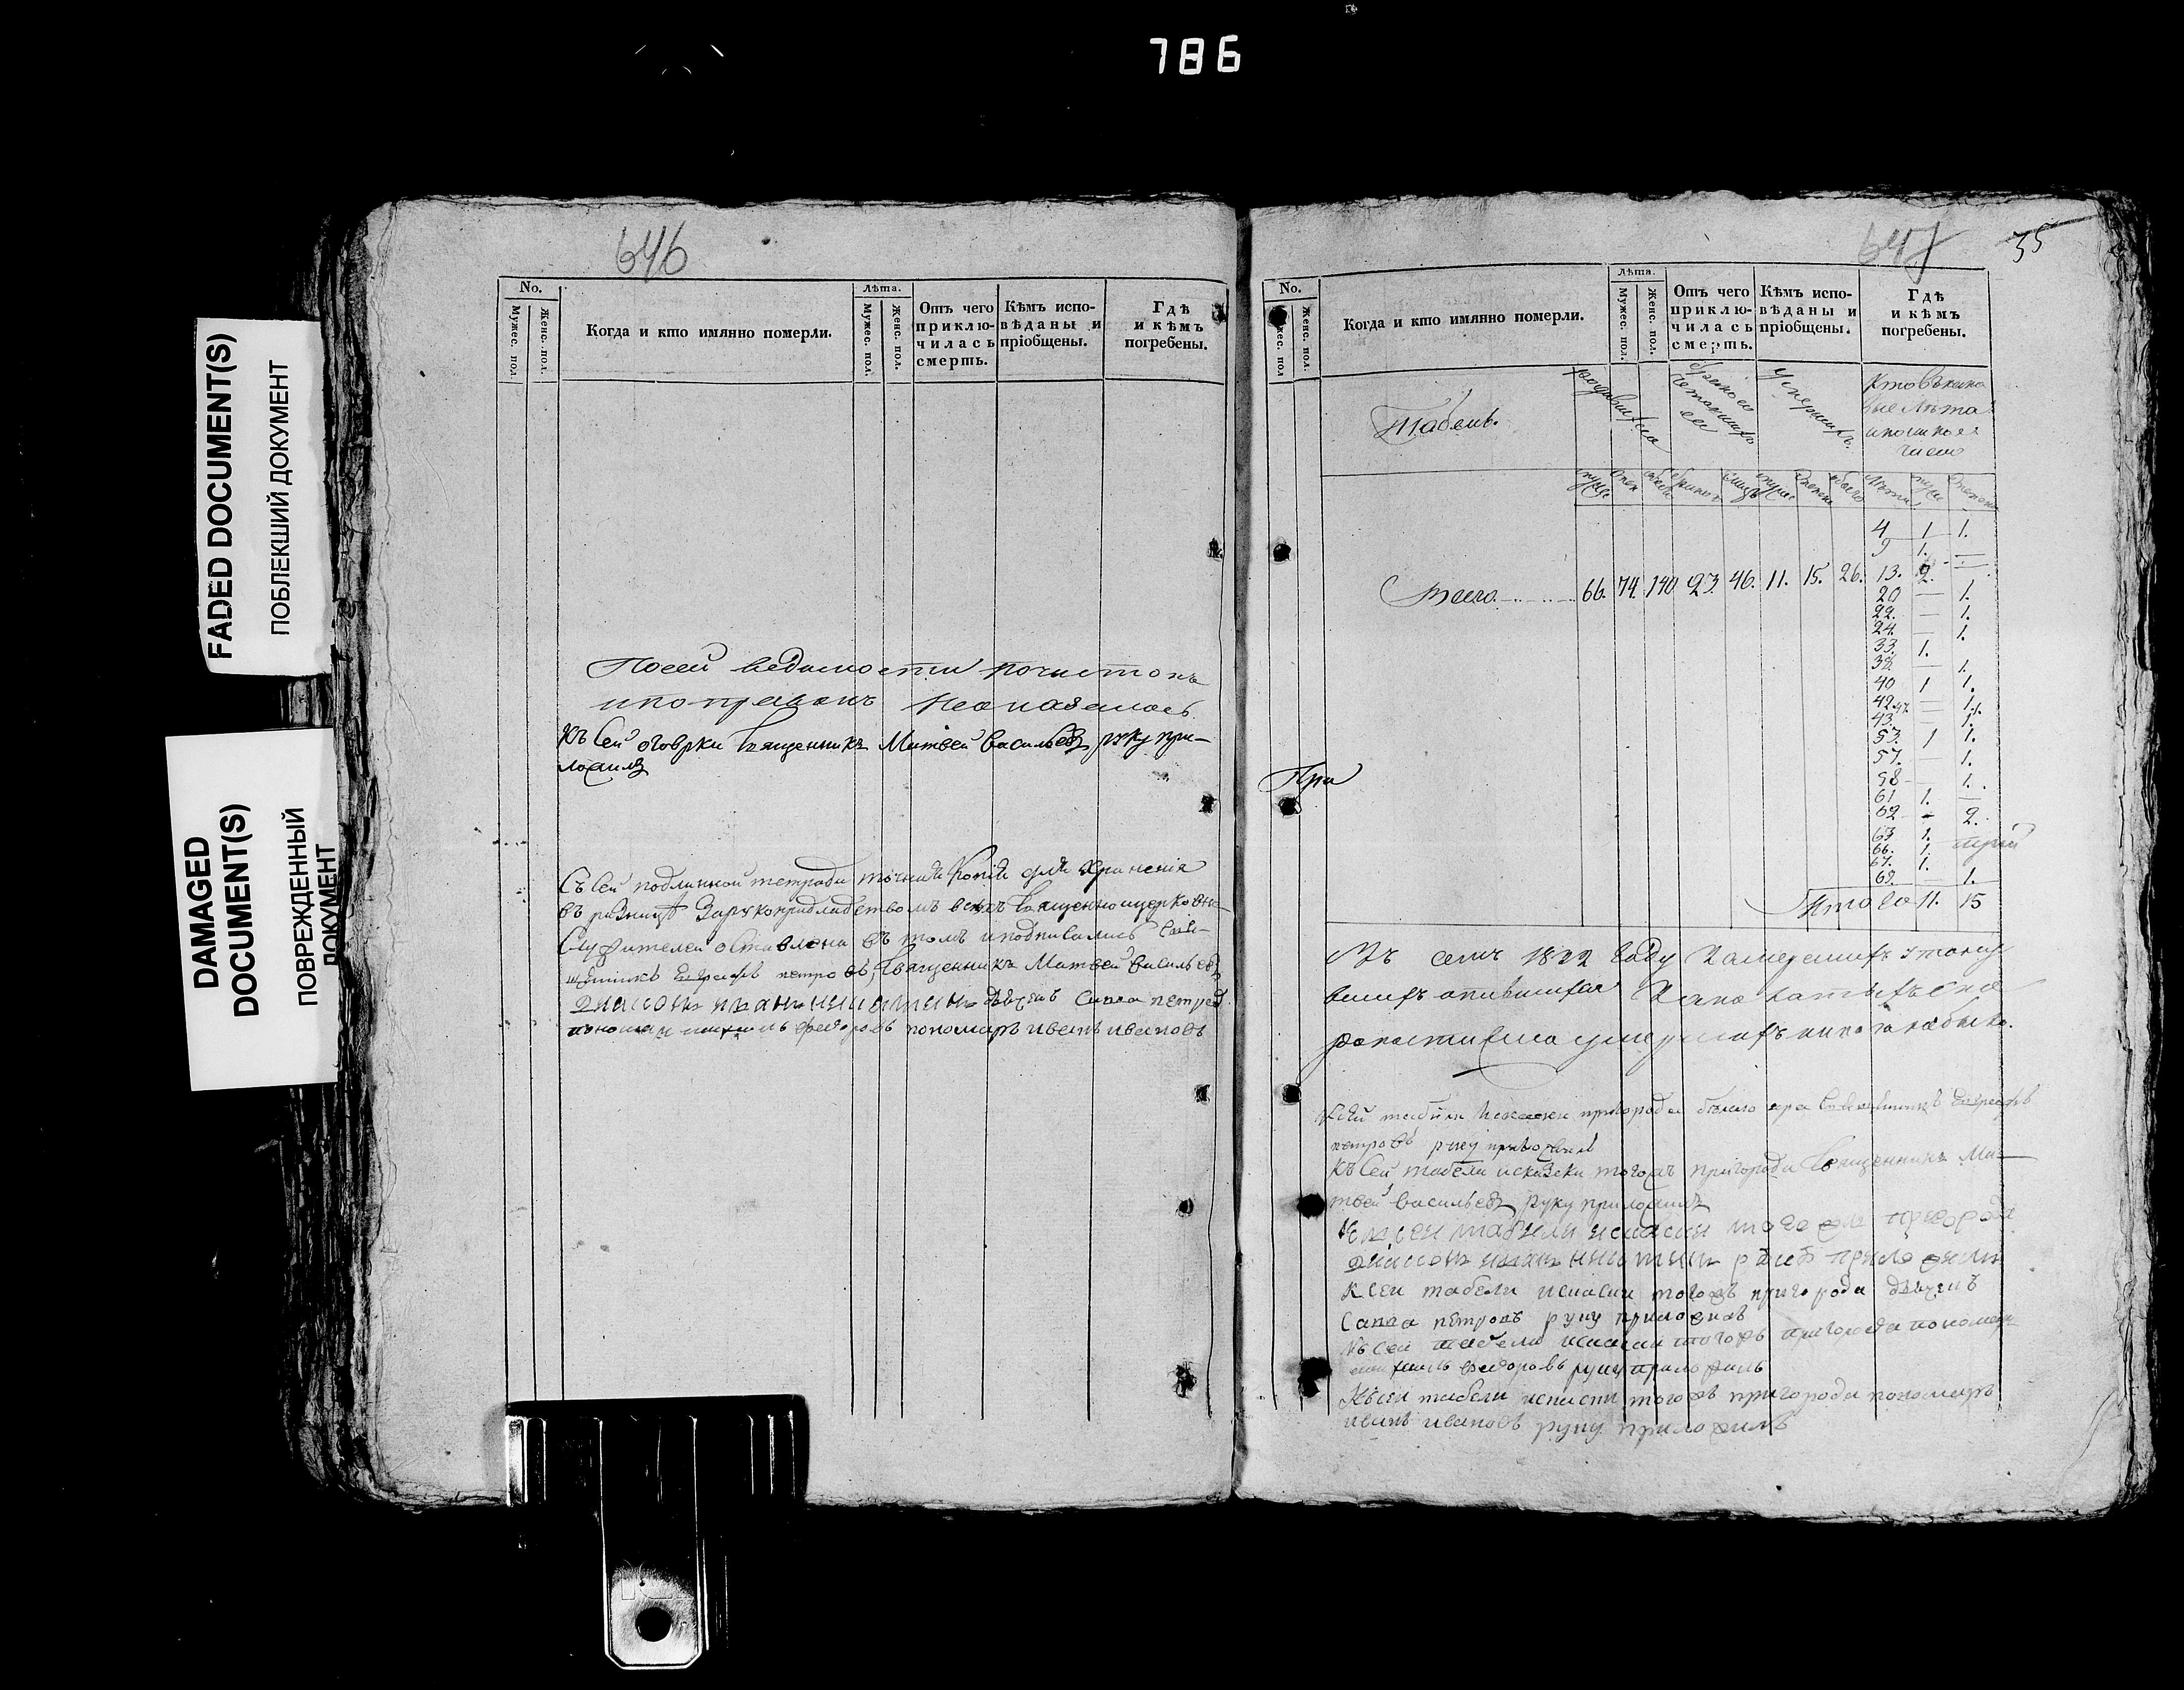 786
FADED DOCUMENT(S)
ПОБЛЕКШИЙ ДОКУМЕНТ
DAMAGED
DOCUMENT(S)
ПОВРЕЖДЕННЫЙ
ДОКУМЕНТ
646
No.
Мужес. пол
Женс. пол.
Когда и кто имянно померли.
Лѣта.
Мужес. пол.
Женс. пол.
Отъ чего
приклю-
чилась
смерть.
Кѣмъ испо-
вѣданы и
пріобщены.
Гдѣ
и кѣмъ
погребены.
По сей ведомости почистокъ
и поправокъ не оказалось
Къ сей оговрки священникъ Матвей Васильевъ руку при-
ложилъ
Съ сей подлинной тетради точная копія для храненія
въ ризницѣ за рукоприкладствомъ всѣхъ священноцерковно
служителей оставлена въ томъ и подписались свя-
щенникъ петровъ, священникъ Матвей Васильевъ
диаконъ иванъ дьячекъ Савва петровъ
пономарь федоровъ пономарь иванъ ивановъ
647
35
No.
Мужес. пол
Женс. пол.
Когда и кто имянно померли.
Лѣта.
Мужес. пол.
Женс. пол.
Отъ чего
приклю-
чилась
смерть.
Кѣмъ испо-
вѣданы и
пріобщены.
Гдѣ
и кѣмъ
погребены.
Табель.
родившихся
умершихъ.
Кто въ како
вые лѣта
число
4 1 1.
9 1. —
Всего 66. 74. 140 23. 46. 11. 15. 26. 13. 2. —
20 — 1.
22. — 1.
24. — 1.
33. 1.
38. — 1.
40 1 1.
42 — 1.
43. — 1.
53. 1 1.
57. — 1.
58 — 1.
61 1. —
62 - 2.
63 1.
66. 1.
67. 1.
69. — 1.
Итого 11. 15
При
Въ семъ 1822 году замерзшихъ утонув
шихъ опившихся
умершихъ никого не было.
петровъ руку приложилъ
Къ сей табели и сказки тогожъ пригорода священникъ Ма-
твей Васильевъ руку приложилъ
К сей табели и скаски того же пригорода
диаконъ иванъ руку приложилъ
К сей табели и скаски тогожъ пригорода дьячекъ
Савва петровъ руку приложилъ
Къ сей табели и скаски тогожъ пригорода пономарь
федоровъ руку приложилъ
Къ сей табели и скаски тогожъ пригорода пономарь
иванъ ивановъ руку приложилъ